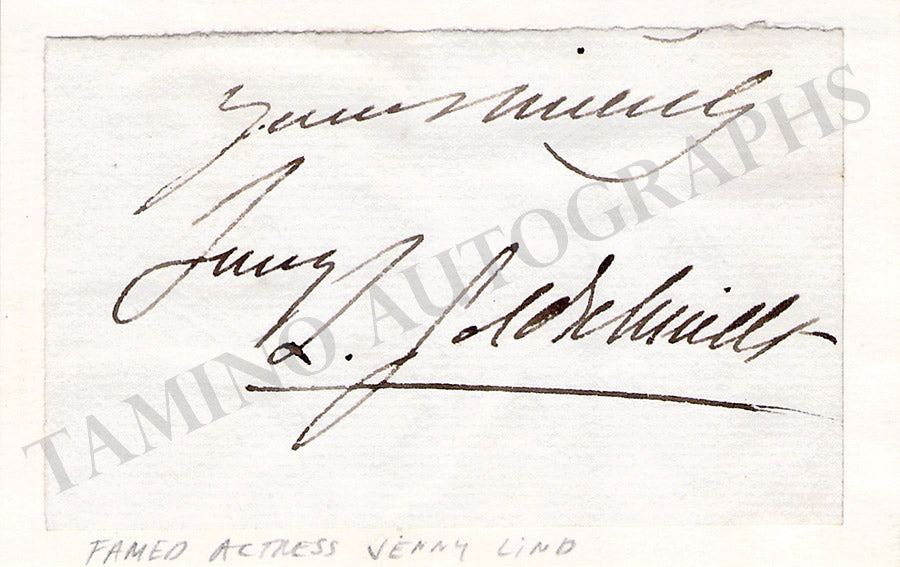 Yours sincerely
Jenny
L. Goldschmidt
TAMINO AUTOGRAPHS
FAMED ACTRESS JENNY LIND